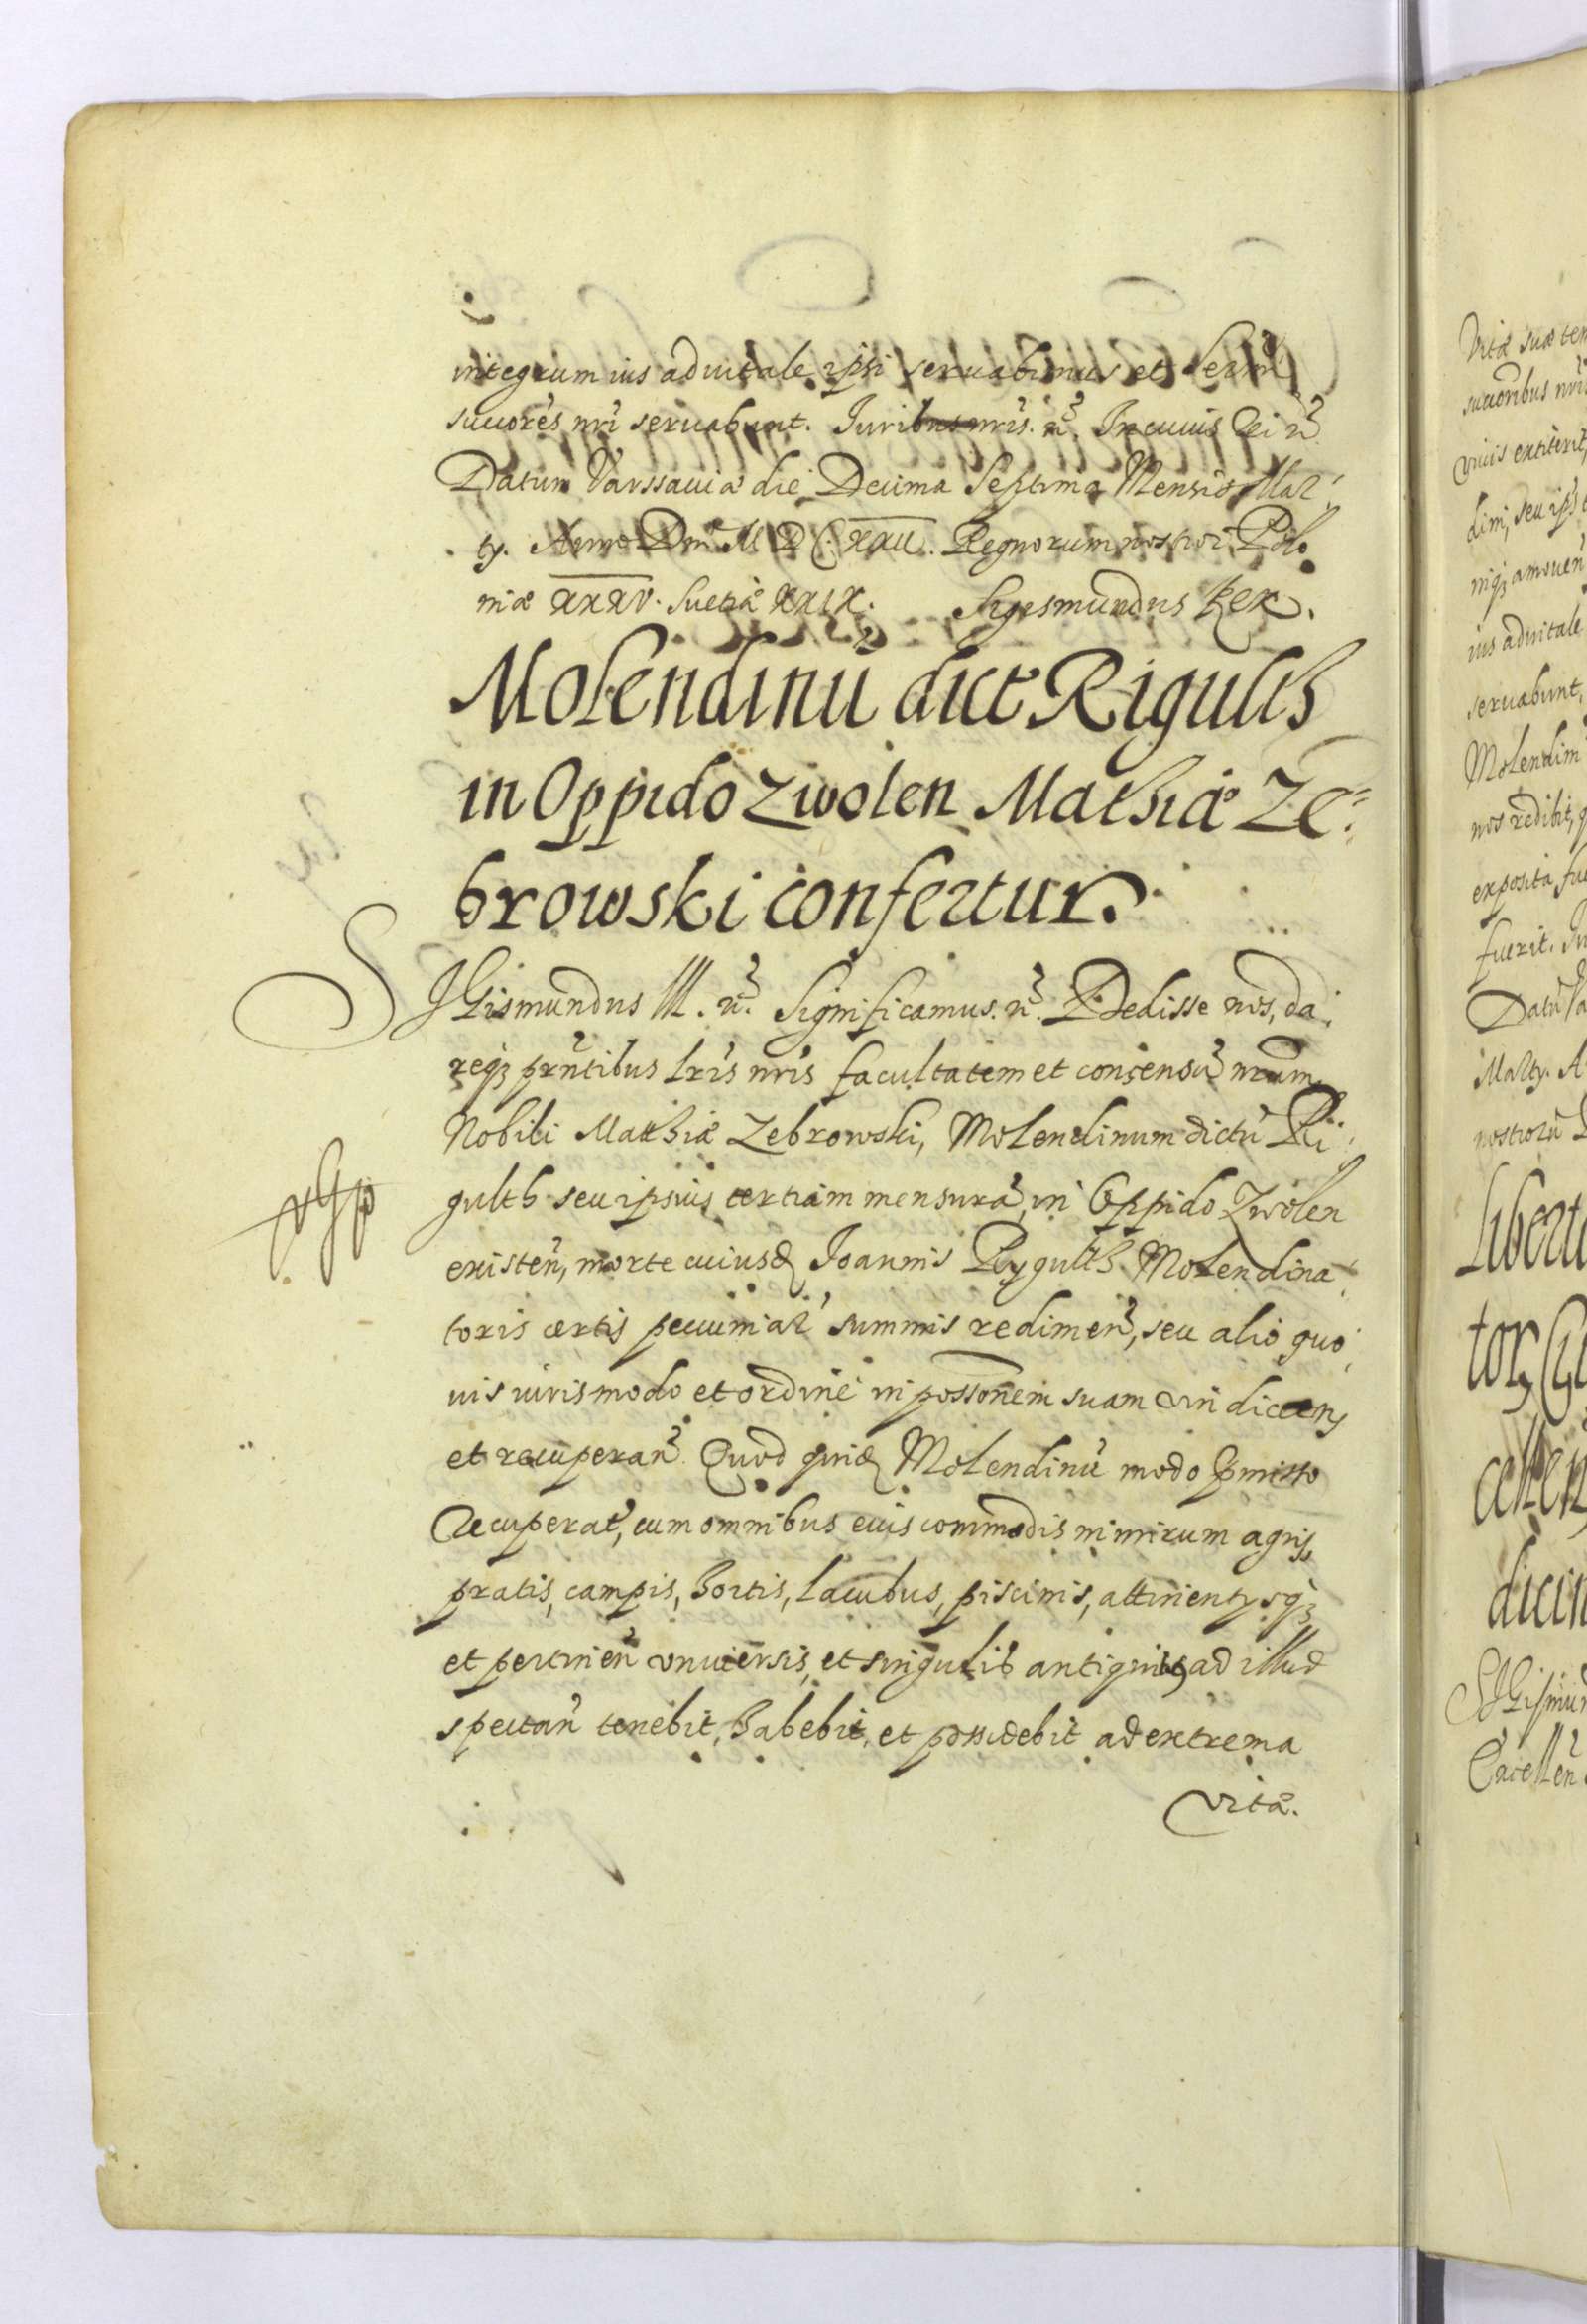 integrum ius aduitale ipsi seruabimus et Sermi
succores nri seruabunt. Iuribus nris. &. In cuius Rei &
Datum Varssauiæ die Decima Septima Mensis Mar
ty. Anno Dni M D C XXII. Regnorum nostror Polo
niæ XXXV. Suetiæ XXIX. Sigismundus Rex.
Molendinũ dict Rigulth
in Oppido Zwolen Mathiæ Ze=
browski confertur.
SIGismundus III. &. Significamus. &. Dedisse nos, da
req3 prñtibus lris nris facultatem et consensũ nrum
Nobili Mathiæ Zebrowski, Molendinum dictũ Ri
gulth seu ipsius tertiam mensurã, in Oppido Zwolen
existeñ, morte cuiusd Ioannis Rygulth Molendina
toris certis pecuniar summis redimeñ, seu alio quo
uis iuris modo et ordine in possonem suam vindicen
et recuperañ. Quod quid Molendinũ modo pmisso
Recuperat, cum omnibus eius commodis nimirum agris,
pratis, campis, hortis, lacubus, piscinis, attinentysq3
et pertineñ vniuersis, et singulis antiquitus ad illud
spectañ tenebit, habebit, et possidebit ad extrema
vitæ.
Vitæ suæ tem
succoribus nris
viuis extiterit,
dim, seu ips
niq3 amoueñ
ius aduitale
seruabunt,
Molendim
nos redibit, q
exposita fue
fuerit. In
Datũ Va
Marty. A
nostrorũ P
Liberta
tor
cellen
dicin
SIGismun
Excelleñ